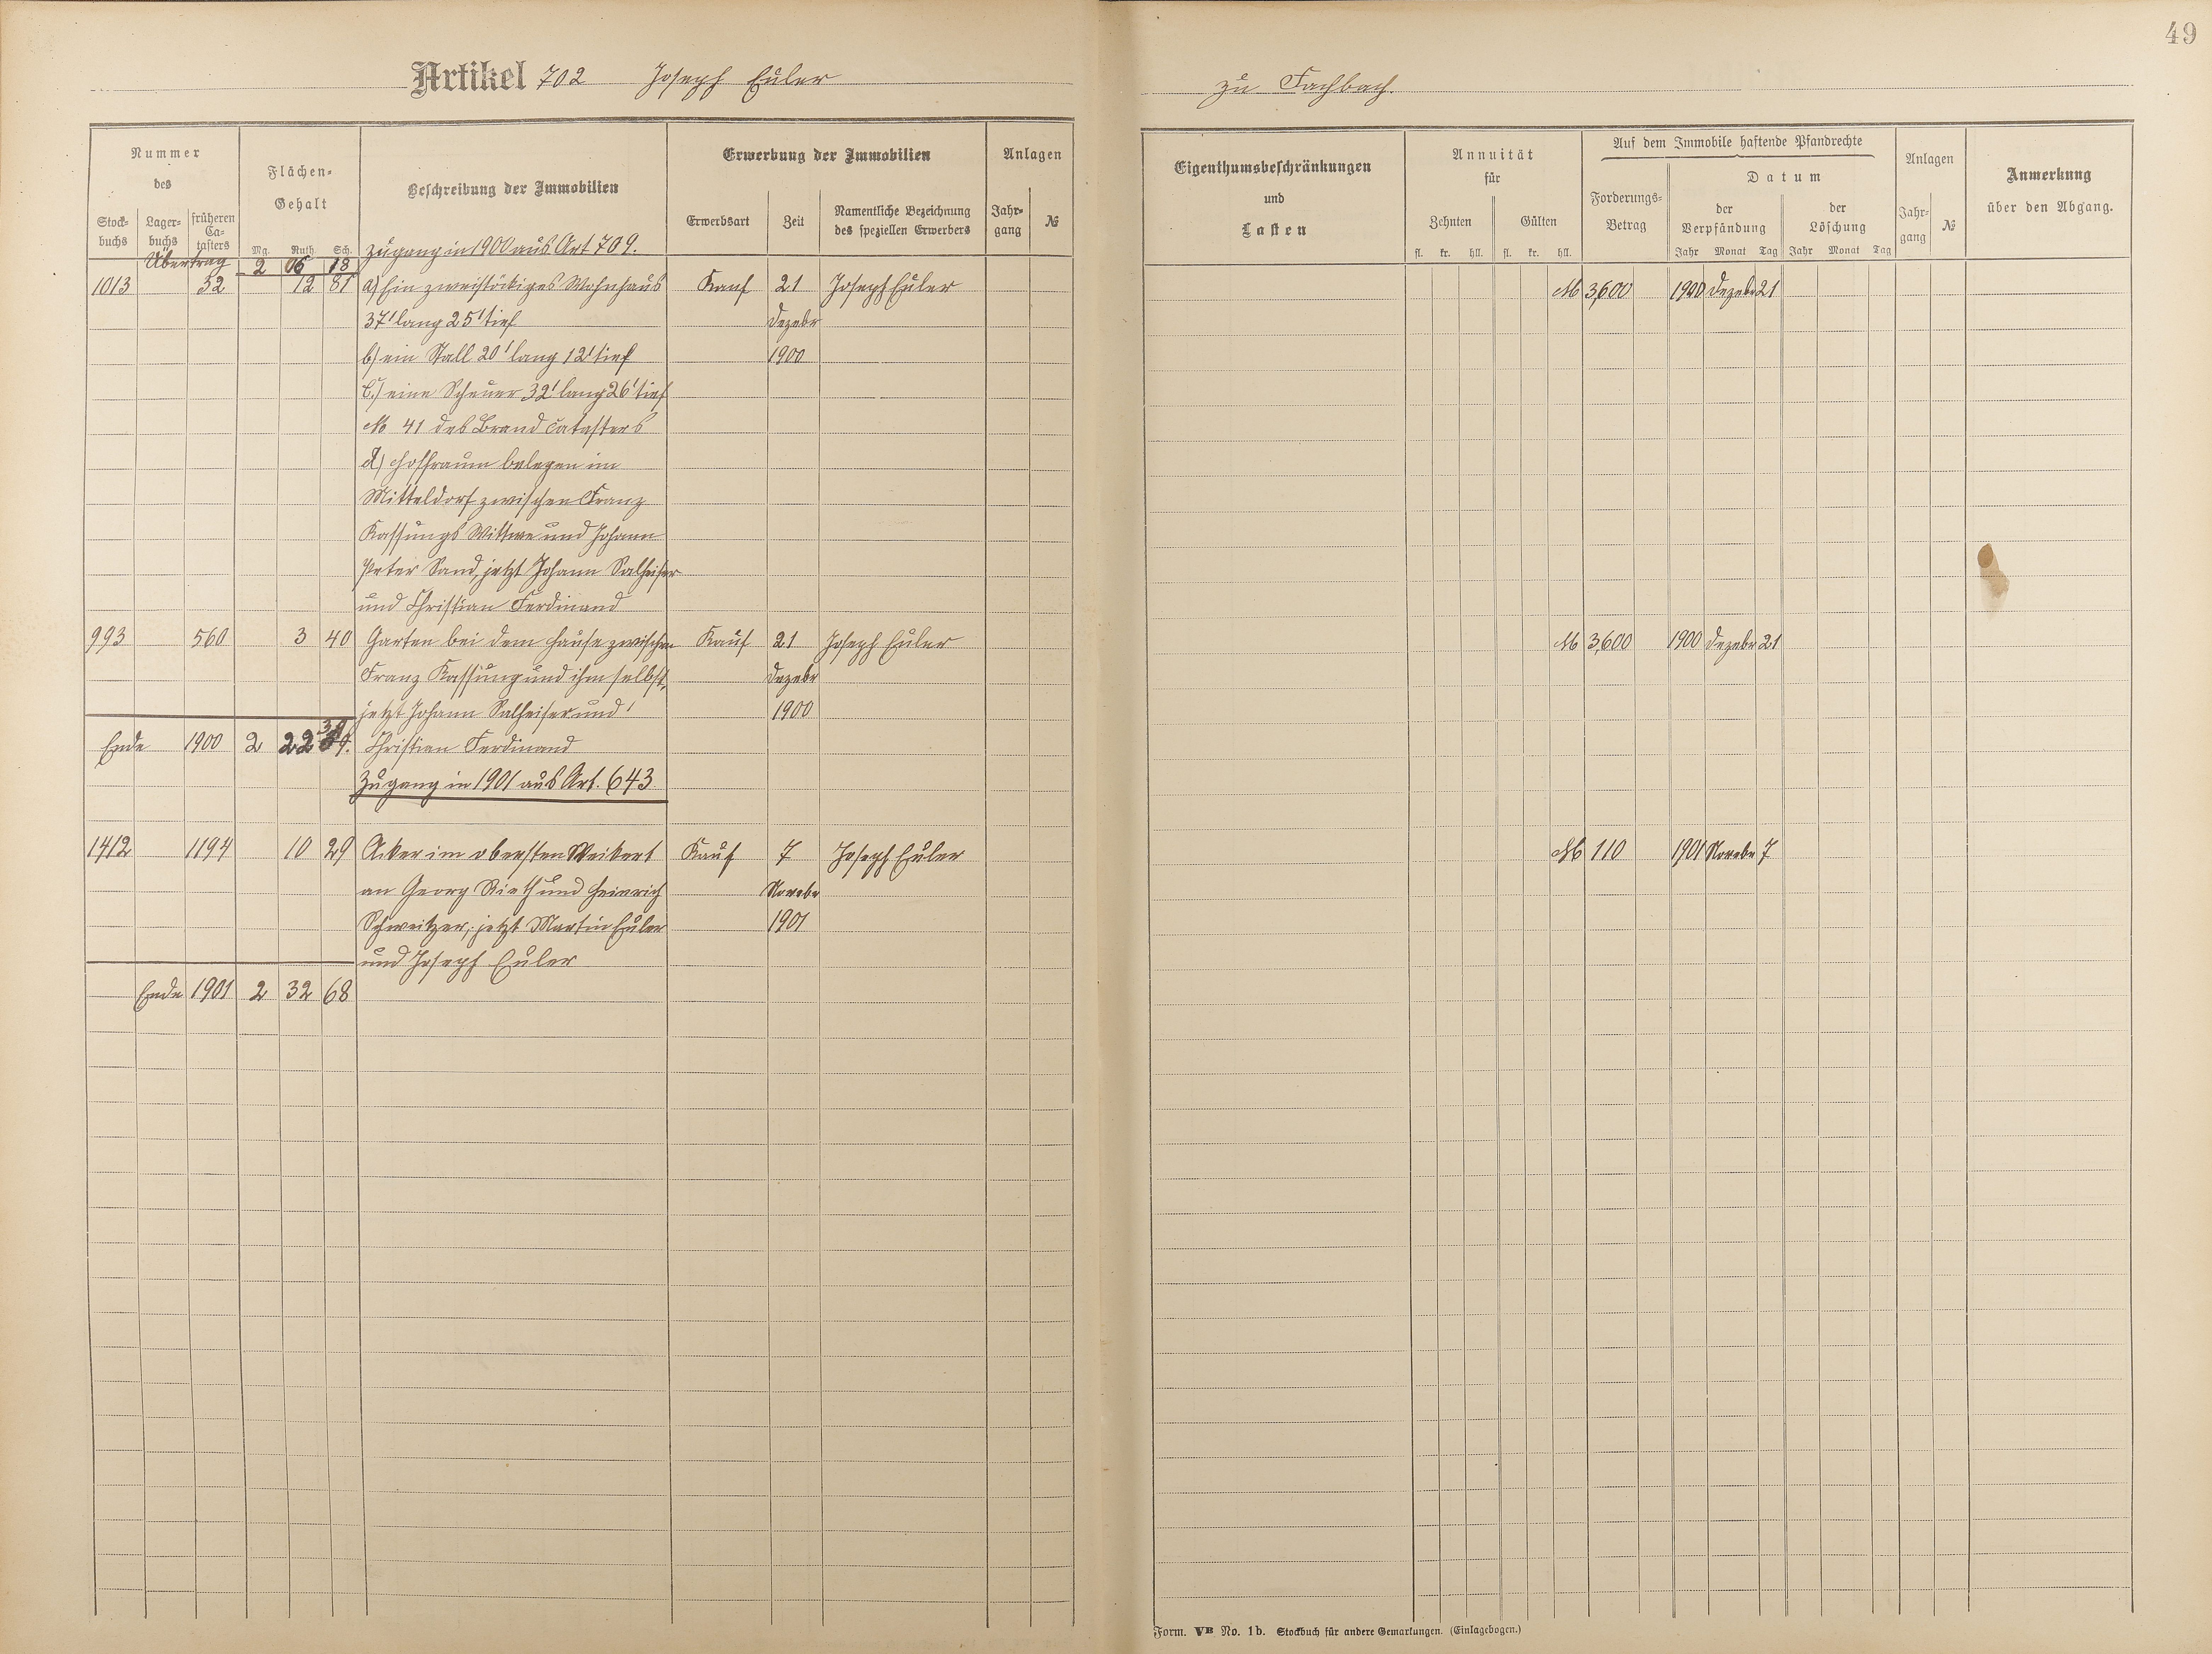 49
Artikel 702 Joseph Euler
zu Fachbach.
Nummer des
Stockbuchs
Lagerbuchs
früheren Catasters
Flächen-Gehalt
Mg. Ruth. Sch.
Beschreibung der Immobilien
Erwerbung der Immobilien
Erwerbsart
Zeit
Namentliche Bezeichnung des speziellen Erwerbers
Anlagen
Jahrgang
№
Eigenthumsbeschränkungen
und
Lasten
Annuität
für
Zehnten
Gülten
fl. kr. hll. fl. kr. hll.
Auf dem Immobile haftende Pfandrechte
Forderungs-Betrag
Datum
der Verpfändung
der Löschung
Jahr Monat Tag Jahr Monat Tag
Anlagen
Jahrgang
№
Anmerkung
über den Abgang.
Zugang in 1900 aus Art 709.
Übertrag 2 06 18
1013 32 12 81 a) Ein zweistöckiges Wohnhaus Kauf 21 Joseph Euler M 3,600 1900 Dezebr 21
37' lang 25' tief Dezebr
b) ein Stall 20' lang 12' tief 1900
c.) eine Scheuer 32' lang 26' tief
№ 41 des Brand Catasters
d) Hofraum belegen im
Mitteldorf zwischen Franz
Kassungs Wittwe und Johann
Peter Sand, jetzt Johann Salheiser
und Christian Ferdinand
993 560 3 40 Garten bei dem Hause zwischen Kauf 21 Joseph Euler M 3,600 1900 Dezebr 21
Franz Kassung und ihm selbst, Dezebr
jetzt Johann Salheiser und 1900
Ende 1900 2 22 39 Christian Ferdinand
Zugang in 1901 aus Art. 643
1412 1194 10 29 Acker im obersten Weikert Kauf 7 Joseph Euler M 110 1901 Novebr 7
an Georg Rieth und Heinrich Novebr
Schweitzer, jetzt Martin Euler 1901
und Joseph Euler
Ende 1901 2 32 68
Form. VB No. 1b. Stockbuch für andere Gemarkungen. (Einlagebogen.)